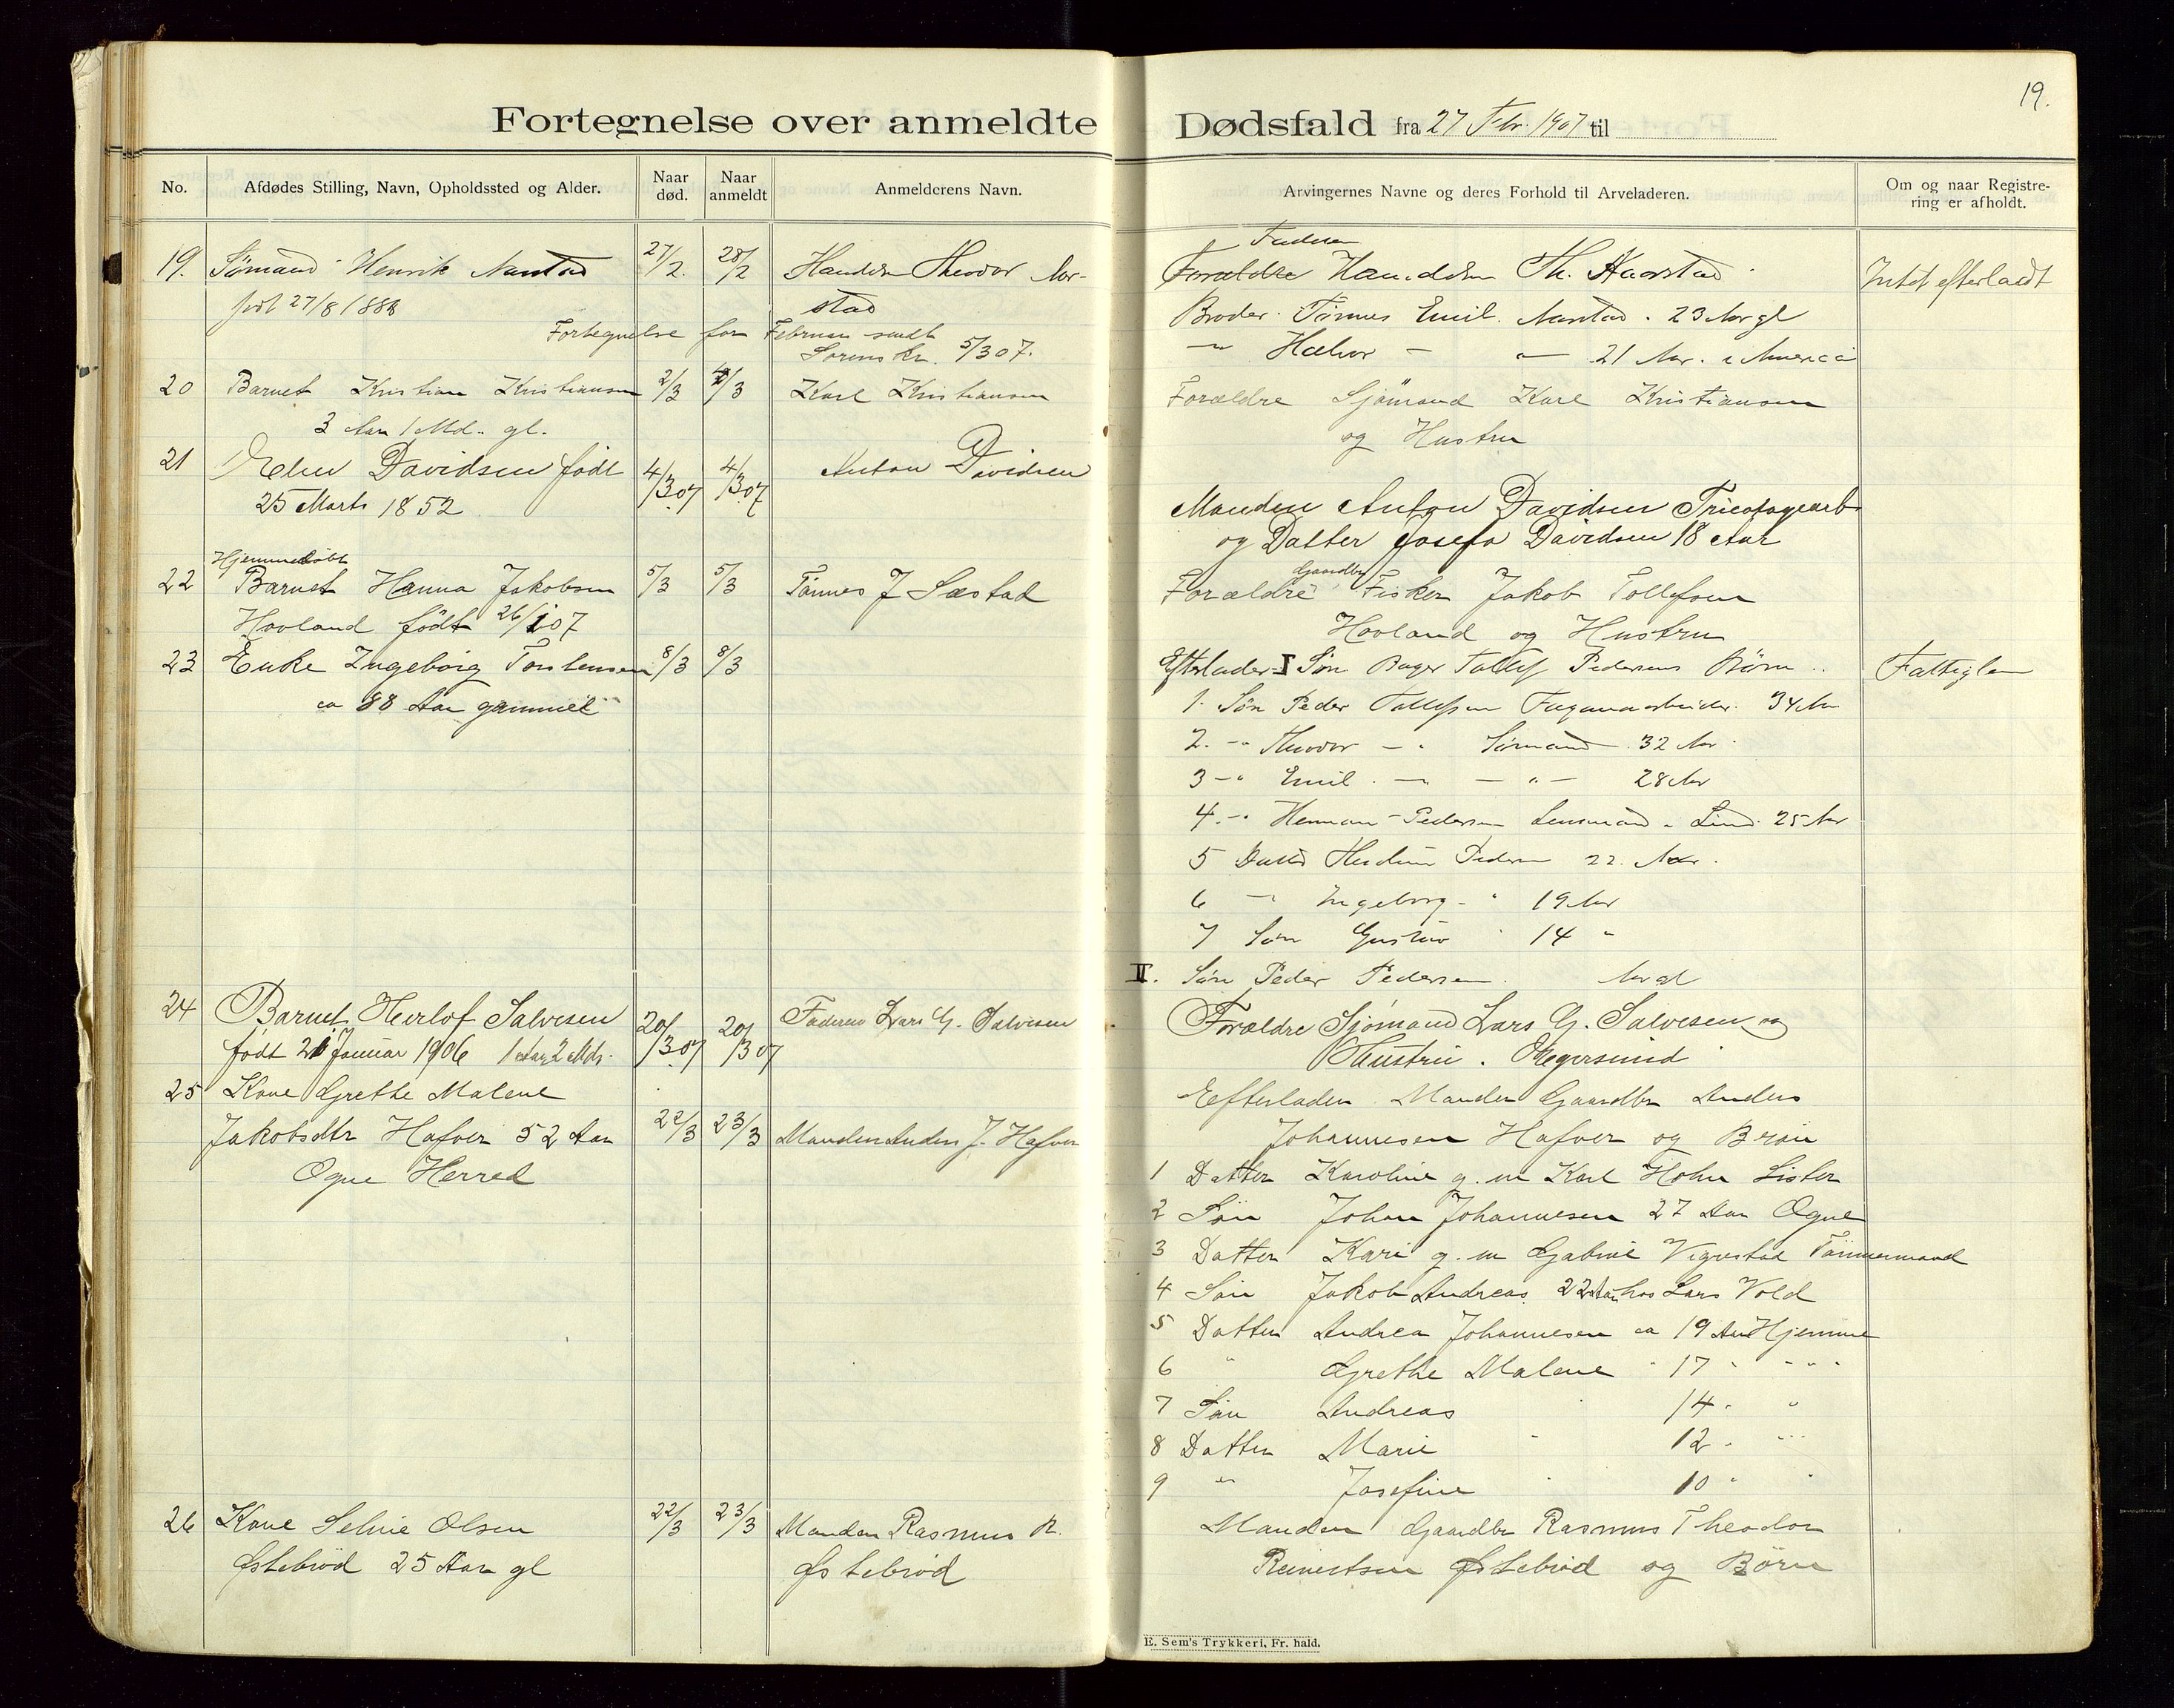 19.
Fortegnelse over anmeldte Dødsfald fra 27 Febr. 1907 til
No. Afdødes Stilling, Navn, Opholdssted og Alder. Naar død. Naar anmeldt Anmelderens Navn.
Arvingernes Navne og deres Forhold til Arveladeren. Om og naar Registrering er afholdt.
19. Sømand Henrik Aarstad 27/2. 28/2 Theodor Aar-
født 27/8 1888 stad
Fortegnelse for Februar sendt
Sorenskr. 5/3 07.
20 Barnet Kristian Kristiansen 2/3 4/3 Karl Kristiansen
3 Aar 1 Md. gl.
21 Elen Davidsen født 4/3 07 4/3 07 Anton Davidsen
25 Marts 1852
Hjemmedøbt
22 Barnet Hanna Jakobsen 5/3 5/3 Tønnes J Sæstad
Hovland født 26/1 07
23 Enke Ingeborg Torstensen 8/3 8/3
ca 88 Aar gammel
24 Barnet Herlof Salvesen 20/3 07 20/3 07 Faderen Lars G. Salvesen
født 21 Januar 1906 1 Aar 2 Mdr.
25 Kone Grethe Malene
Jakobsdtr Hafver 52 Aar 22/3 23/3 Manden Anders J. Hafver
Ogne Herred
26 Kone Seline Olsen 22/3 23/3 Manden Rasmus R.
Østebrød 25 Aar gl Østebrød
Faderen
Forældre Th. Aarstad Intet efterladt
Broder Tønnes Emil Aarstad. 23 Aar gl
" Halvor - " 21 Aar. i America
Forældre Sjømand Karl Kristiansen
og Hustru
Manden Anton Davidsen Tricotagearb
og Datter Josefa Davidsen 18 Aar
Gaardbr
Forældre Fisker Jakob Tollefsen
Hovland og Hustru
Efterlader I Søn Bager Tollef Pedersens Børn .. Fattiglem
1. Søn Peder Tollefsen 34 Aar
2. -" Theodor - " Sømand 32 Aar
3 -" Emil - - " - 28 Aar
4. -" Herman Pedersen Lensmand i Lund 25 Aar
5 Datter Pedersen 22. Aar.
6 -" Ingeborg - " 19 Aar
7 Søn Gustav " 14 "
II. Søn Peder Pedersen. Aar gl
Forældre Sjømand Lars G. Salvesen og
Hustru. Egersund
Efterlader Manden Gaardbr Anders
Johannesen Hafver og Børn
1 Datter Karoline g. m Karl Holm Lister
2 Søn Johan Johannesen 27 Aar Ogne
3 Datter Kari g. m Gabriel Vigrestad Tømmermand
4 Søn Jakob Andreas 22 Aar hos Lars Vold
5 Datter Andrea Johannesen ca 19 Aar Hjemme
6 " Grethe Malene " 17 " " " "
7 Søn Andreas " 14 " "
8 Datter Marie " 12 " " "
9 " Josefine " 10 " "
Manden Gaardbr Rasmus Theodor
Reinertsen Østebrød og Børn
E. Sem's Trykkeri, Fr. hald.